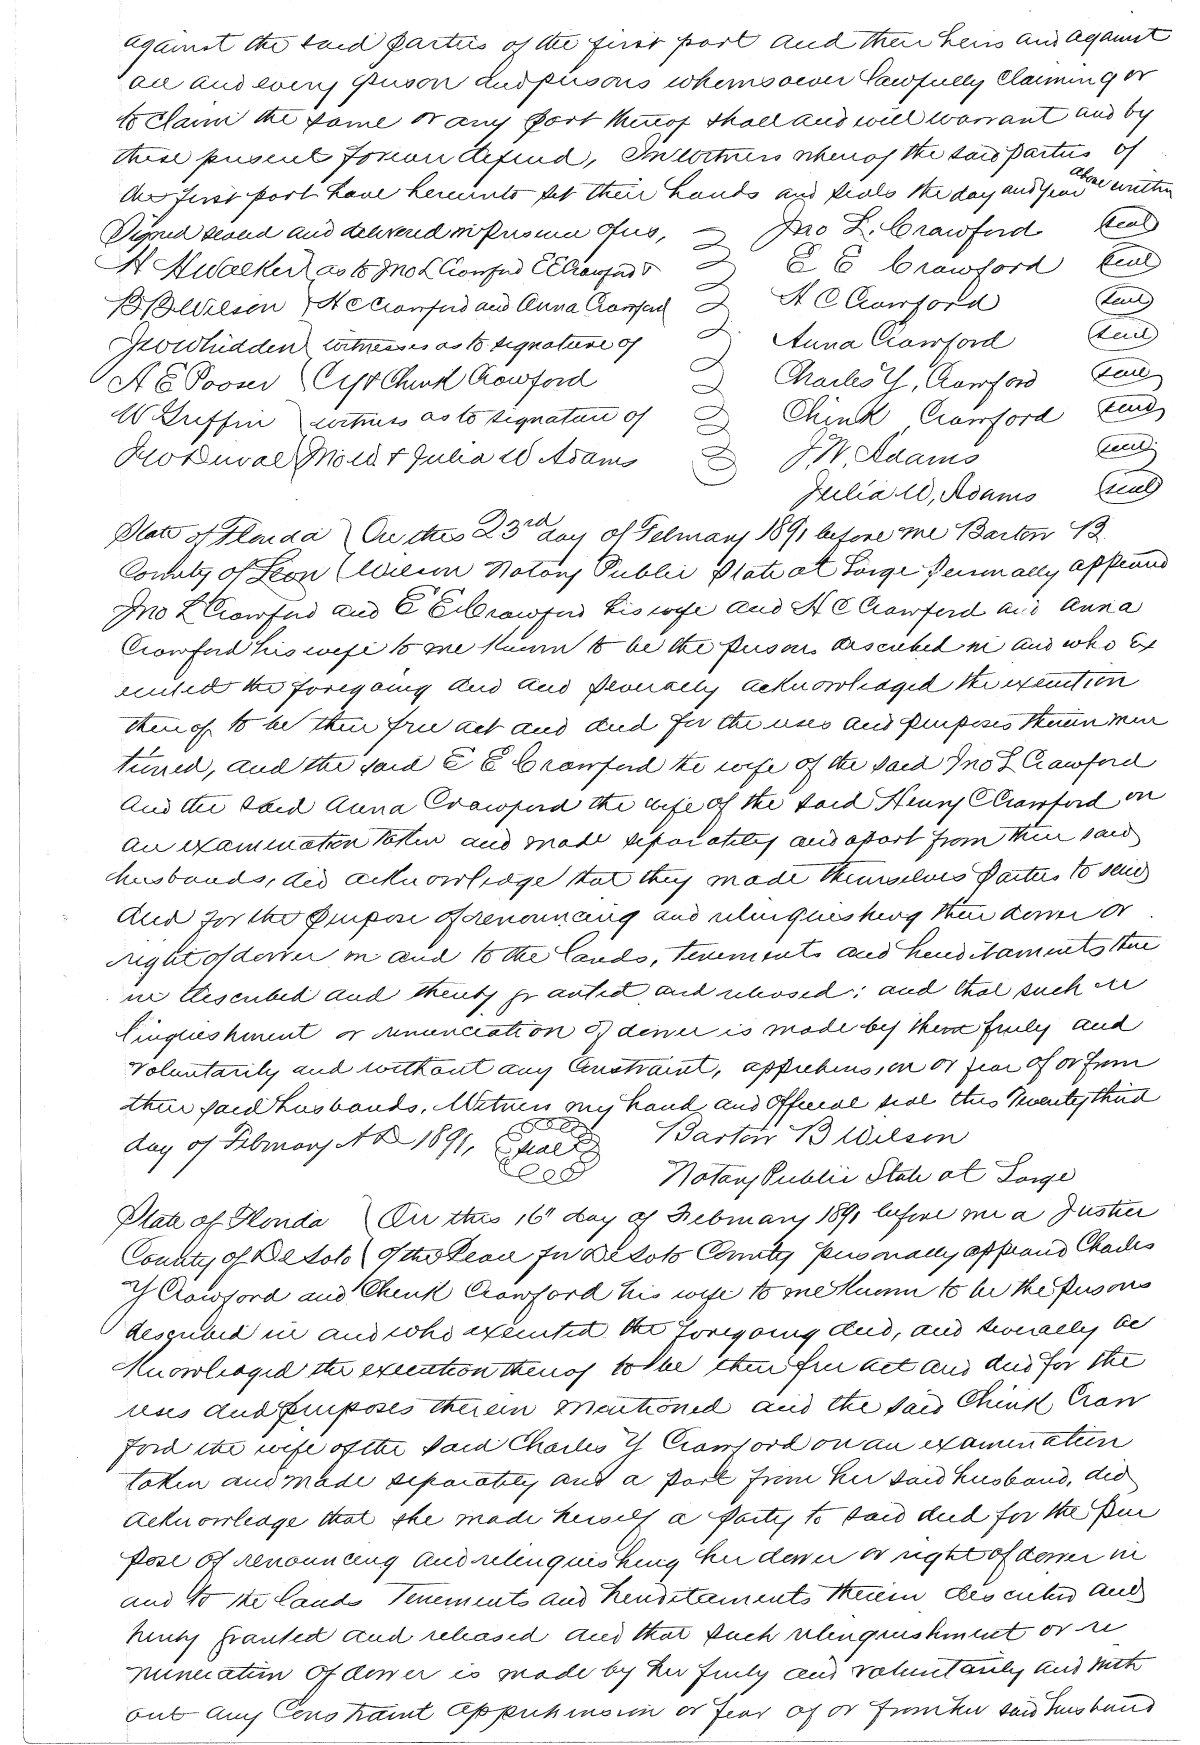 against the said parties of the first part and their heirs and against
all and every person and persons whomsoever lawfully claiming or
to claim the same or any part thereof shall and will warrant and by
these present forever defend, In witness whereof the said parties of
the first part have hereunto set their hands and seals the day and year above written
Signed sealed and delivered in presence of us, Jno L. Crawford seal
H H Walker as to Jno L Crawford E E Crawford & E E Crawford seal
B B Wilson H C Crawford and Anna Crawford H C Crawford seal
Jno Whidden witnesses as to signature of Anna Crawford seal
A E Pooser C Y & Chink Crawford Charles Y, Crawford seal
W Griffin witness as to signature of Chink Crawford seal
Jno Duval & Julia W Adams J. W. Adams seal
Julia W, Adams seal
State of Florida On this 23rd day of February 1891 before me Barton B.
County of Leon Wilson Notary Public State at Large personally appeared
Jno L Crawford and E E Crawford his wife and H C Crawford and Anna
Crawford his wife to me known to be the persons described in and who Ex
ecuted the foregoing deed and severally acknowledged the execution
thereof to be their free act and deed for the uses and purposes therein men
tioned, and the said E E Crawford the wife of the said Jno L Crawford
and the said Anna Crawford the wife of the said Henry C Crawford on
an examination taken and made separately and apart from their said
husbands, did acknowledge that they made themselves parties to said
deed for the purpose of renouncing and relinquishing their dower or
right of dower in and to the lands, tenements and hereditaments there
in described and thereby granted and released; and that such re
linquishment or renunciation of dower is made by them freely and
voluntarily and without any Constraint, apprehension or fear of or from
their said husbands. Witness my hand and official seal this Twenty third
day of February A D 1891, seal Barton B Wilson
Notary Public State at Large
State of Florida On this 16" day of February 1891 before me a Justice
County of De Soto of the Peace for De Soto County personally appeared Charles
Y Crawford and Chink Crawford his wife to me known to be the persons
described in and who executed the foregoing deed, and severally ac
knowledged the execution thereof to be their free act and deed for the
uses and purposes therein mentioned and the said Chink Craw
ford the wife of the said Charles Y Crawford on an examination
taken and made separately and a part from her said husband, did
acknowledge that she made herself a party to said deed for the pur
pose of renouncing and relinquishing her dower or right of dower in
and to the lands Tenements and hereditaments therein described and
hereby granted and released and that such relinquishment or re
nunciation of dower is made by her freely and voluntarily and with
out any Constraint apprehension or fear of or from her said husband